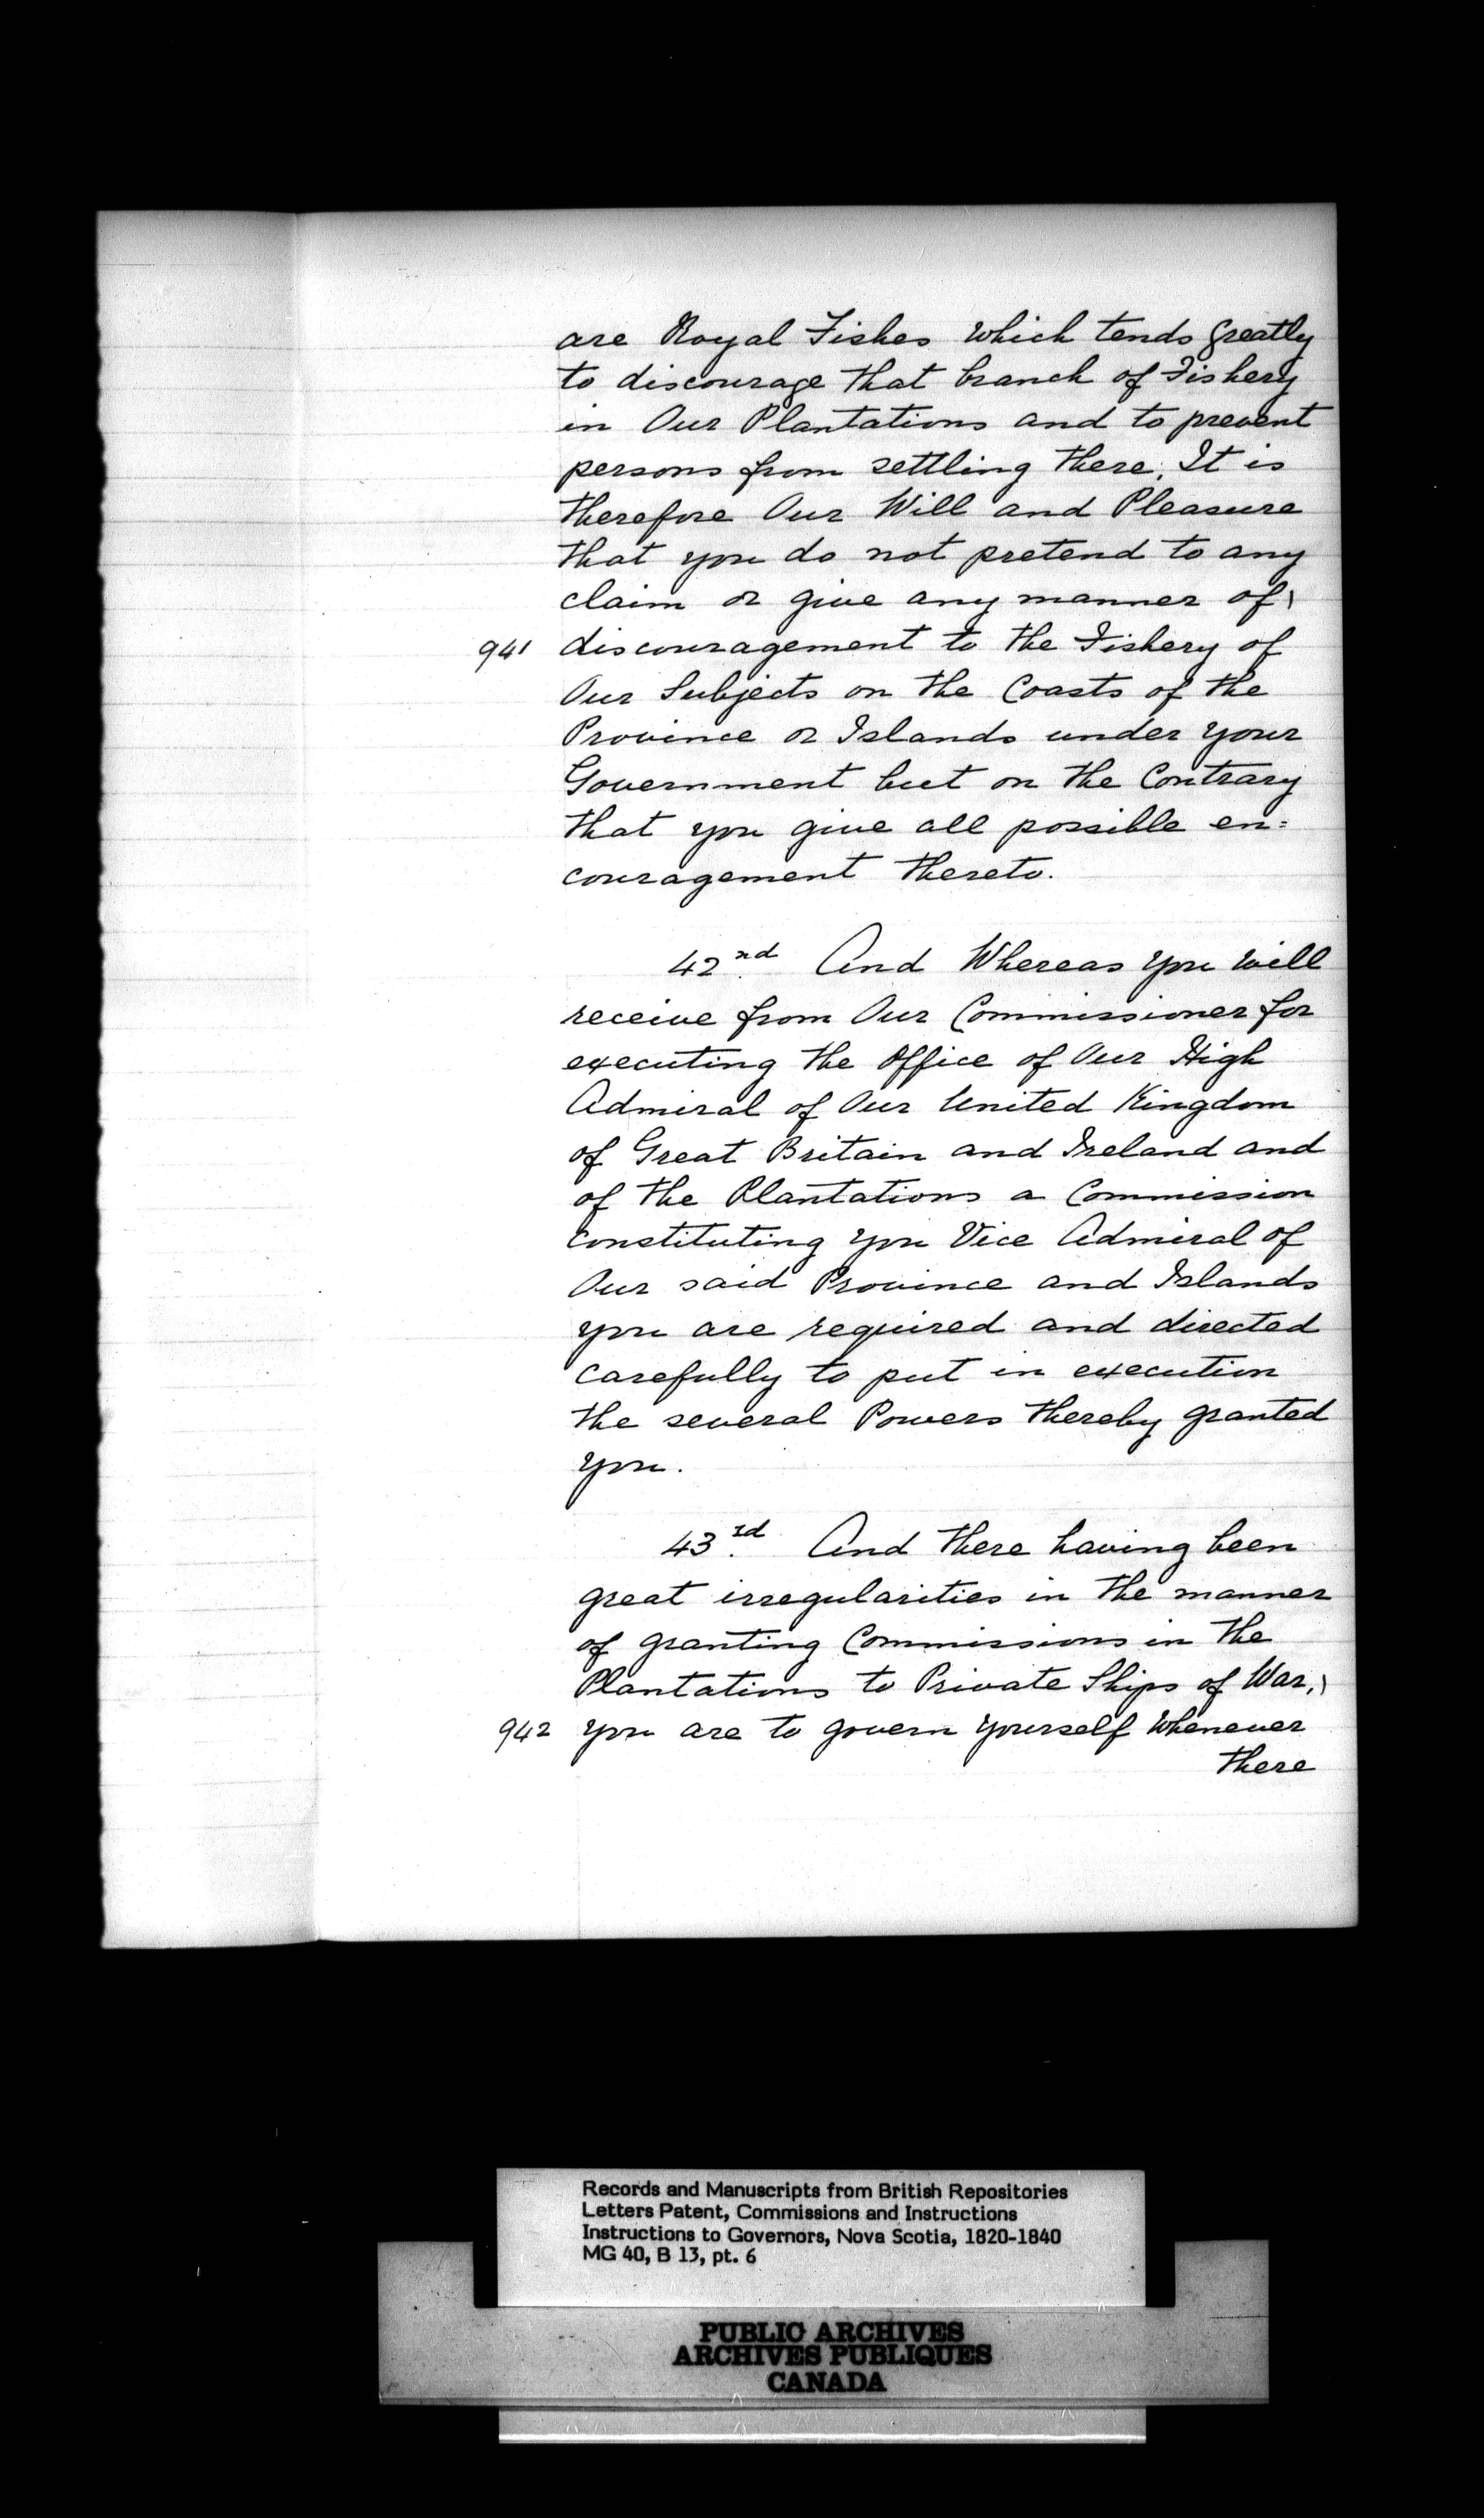 are Royal Fishes which tends greatly
to discourage that branch of Fishery
in Our Plantations and to prevent
persons from settling there. It is
therefore Our Will and Pleasure
that you do not pretend to any
claim or give any manner of\
941 discouragement to the Fishery of
Our Subjects on the Coasts of the
Province or Islands under your
Government but on the Contrary
that you give all possible en=
couragement thereto.
42nd. And Whereas you will
receive from Our Commissioner for
executing the Office of Our High
Admiral of Our United Kingdom
of Great Britain and Ireland and
of the Plantations a Commission
constituting you Vice Admiral of
Our said Province and Islands
you are required and directed
carefully to put in execution
the several Powers thereby granted
you.
43rd. And there having been
great irregularities in the manner
of granting Commissions in the
Plantations to Private Ships of War,\
942 you are to govern yourself whenever
there
Records and Manuscripts from British Repositories
Letters Patent, Commissions and Instructions
Instructions to Governors, Nova Scotia, 1820-1840
MG 40, B 13, pt. 6
PUBLIC ARCHIVES
ARCHIVES PUBLIQUES
CANADA